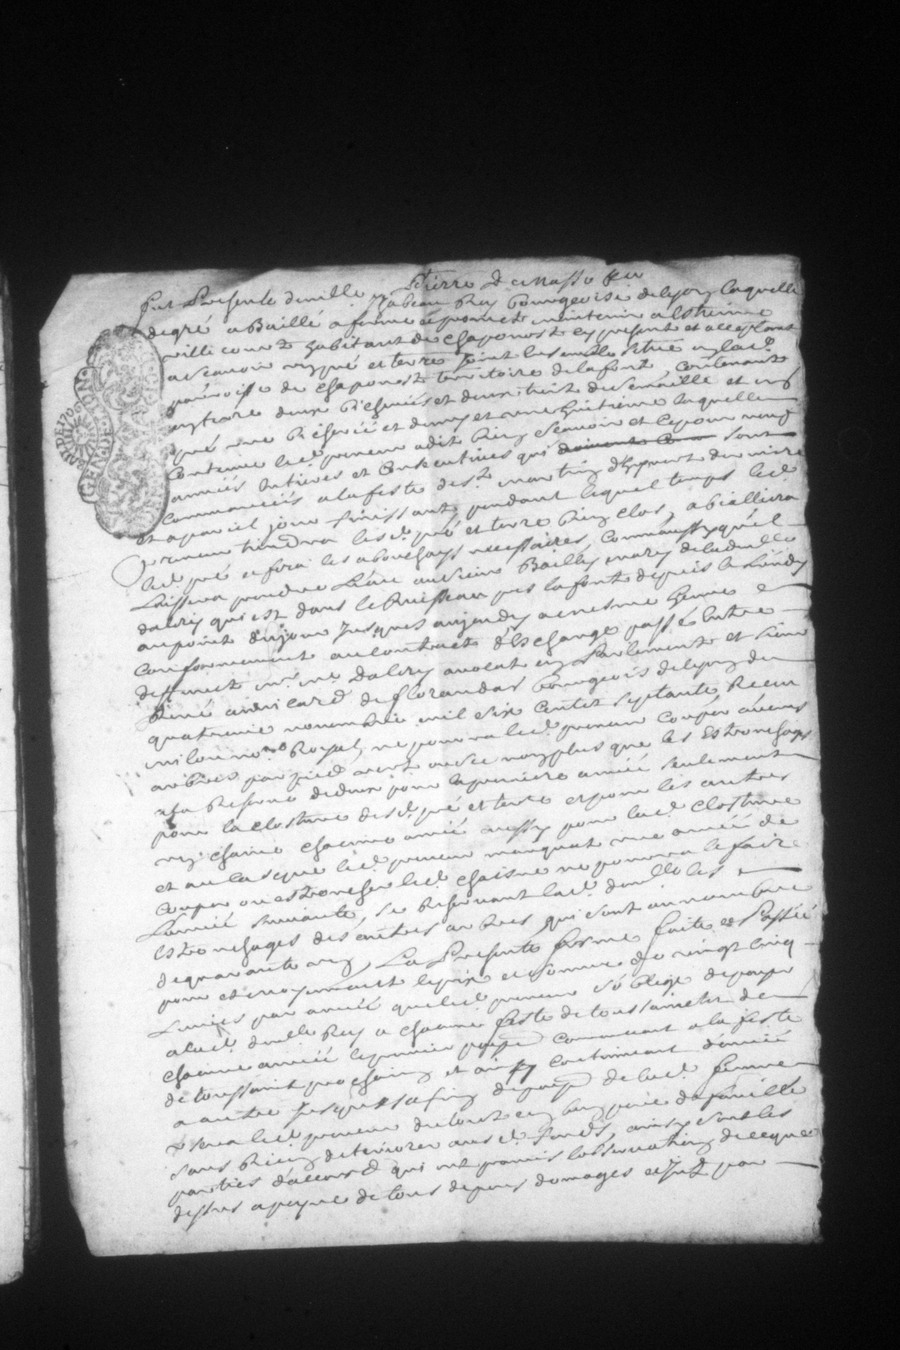 Pierre de Masso feu
fut Presente demlle yzabeau Rey Bourgeoise de Lyon laquelle
de gré a Baillé a ferme et promet maintenir a Estienne
ville cour habitant de Chaponost cy present et acceptant
a scavoir un pré et terre joint les ensemble situé en lad.
paroisse de Chaponost territoire de la font, contenant
en terre deux bicherées et demy de semaille et en
pré une bicherée et demy et une huitieme laquelle
contenue led. preneur a dit bien scavoir et ce pour neuf
années entieres et consecutives qui sont
commencées a la feste de St. Martin d'hyver dernier
et a pareil jour finissant, pendant lequel temps led.
preneur tiendra lesd. pré et terre bien clos, abiellera
led. pré et fera les abouchays necessaires, comm' aussy qu'il
laissera prendre l'eau au sieur Bailly mary de lad. demlle
dalery qui est dans le Ruisseau de la font depuis le lundy
au point du jour jusques au jeudy a mesme heure
conformement au contract d'Eschange passé entre
deffunct mr. me. Dalery avocat en parlement et sieur
René andricard de florandas Bourgeois de Lyon du
quatrieme novembre mil six cents septante, Receu
milouino no. Royal, ne pourra led. preneur couper aucuns
arbres par pied vert ou sec non plus que les Estronchages
a la Reserve de deux pour la premiere année seulement
pour la closture desd. pré et terre et pour les autres
un chaine chacune année aussy pour lad. closture
et au cas que led. preneur manquat une année de
couper ou estroncher led. chaisne ne pourra le faire
l'année suivante, se Reservant lad. demlle les
estronchages des autres arbres qui sont au nombre
de quarante un, La Presente ferme faite et Passée
pour et moyennant le prix et somme de vingt cinq
Livres par année que led. preneur s'oblige de payer
a lad. demlle Rey a chacune feste de toussaints de
chacune année le premier payement commencant a la feste
de toussaint prochaine et ainsy continuant d'année
a autre jusques a fin de payement de lad. ferme
sera led. preneur du tout en bon pere de famille
sans Rien deteriorer aux d. fonds, ainsy sont les
parties d'accord qui ont promis l'observation de ce que
dessus a peyne de tous depens domages et jnt. par